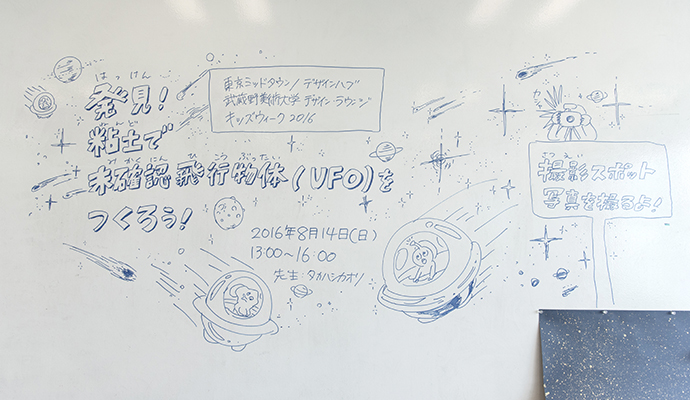 はっけん
発見!
ねんど
粘土で
みかくにん ひこうぶったい
未確認飛行物体(UFO)を
つくろう!
東京ミッドタウン/デザインハブ
武蔵野美術大学 デザイン・ラウンジ
キッズウィーク2016
2016年8月14日(日)
13:00~16:00
先生:タカハシカオリ
撮影スポット
写真を撮るよ!